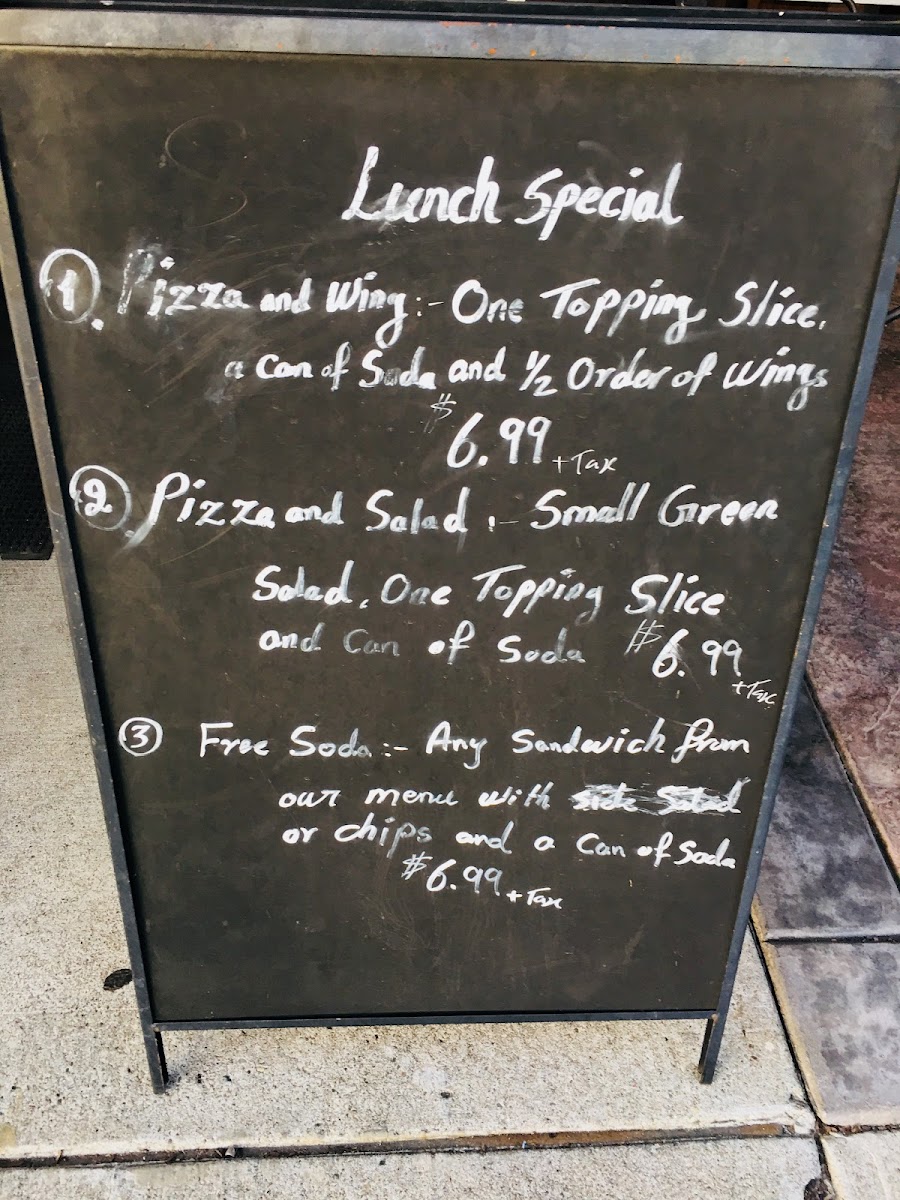 Lunch Special
1. Pizza and Wing:- One Topping Slice,
a Can of Soda and 1/2 Order of Wings
$6.99 +Tax
2. Pizza and Salad :- Small Green
Salad, One Topping Slice
and Can of Soda $6.99
+Tax
3 Free Soda:- Any Sandwich from
our menu with side Salad
or chips and a Can of Soda
$6.99 +Tax